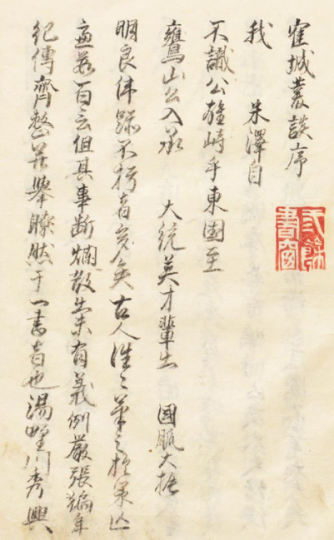 寉城叢談序
我 米澤自
不識公雄峙乎東國至
鷹山公入承 大統英才輩出 國脈大振
明良偉跡不朽者矣古人往々筆之於策以
百云但其事断爛散出有義例嚴張編年
紀傳齊整舉瞭然于一書者也湯野川秀興
餘書窗